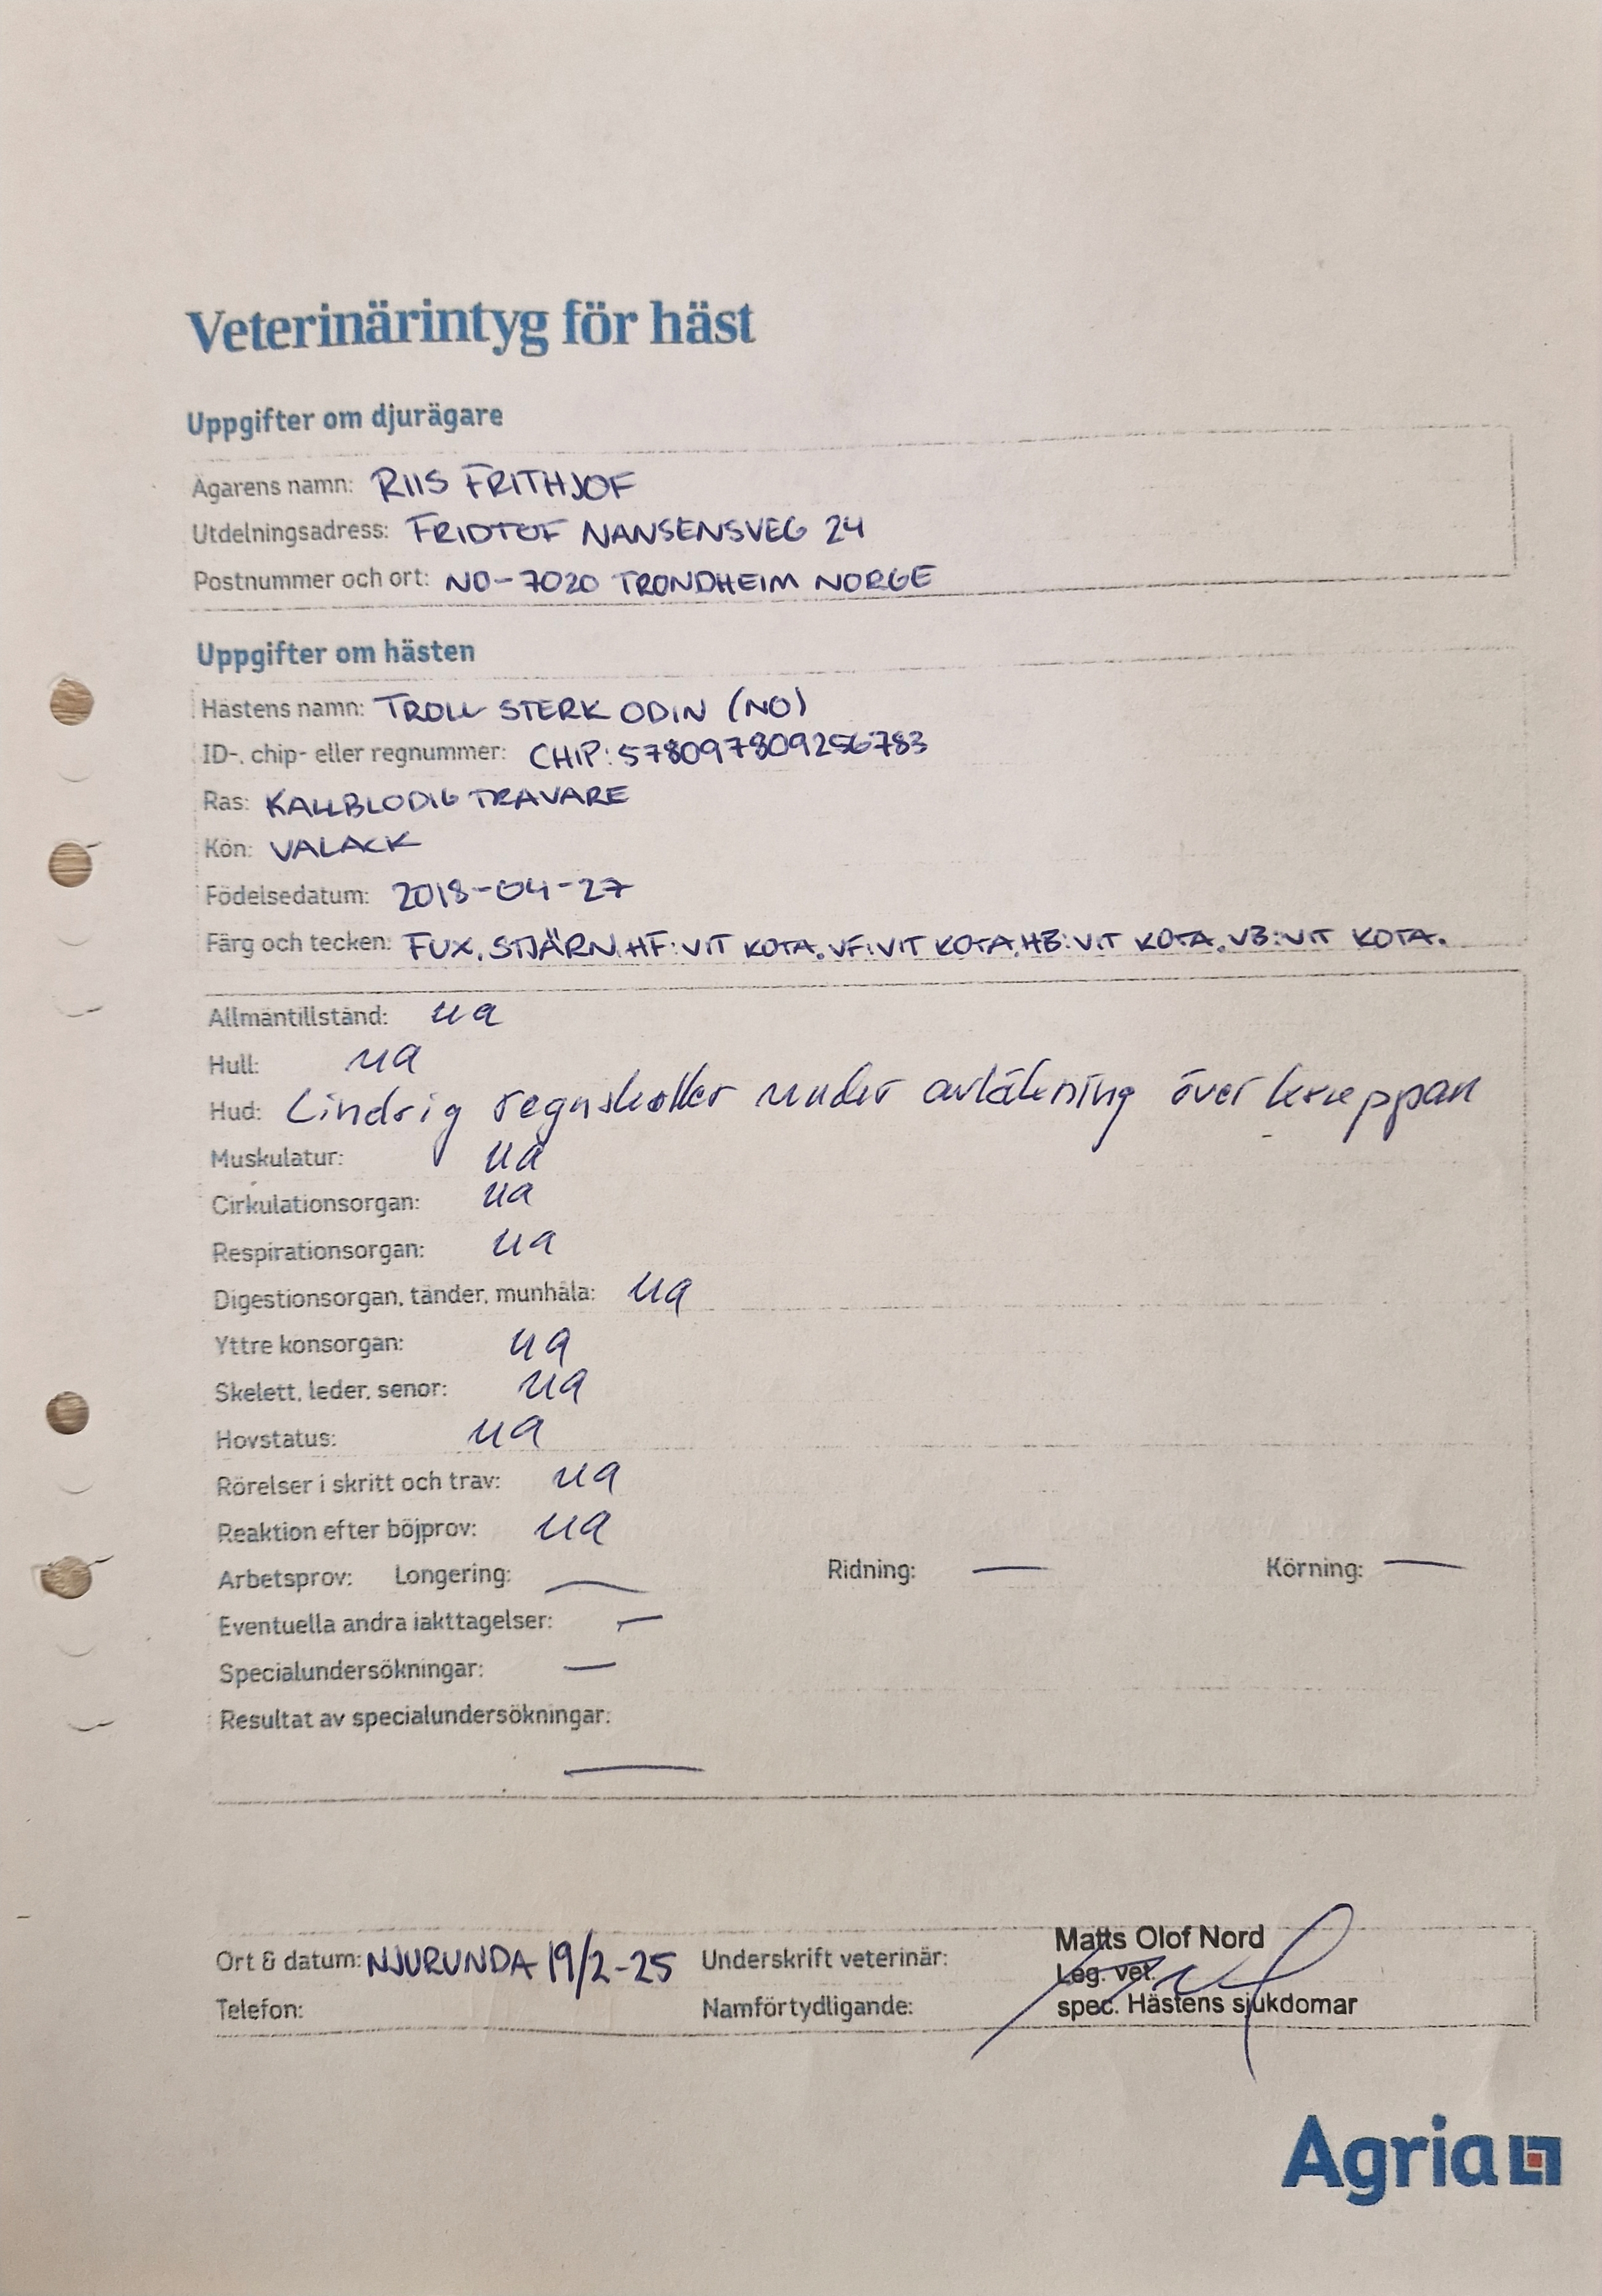 Veterinärintyg för häst
Uppgifter om djurägare
Ägarens namn: RIIS FRITHJOF
Utdelningsadress: FRIDTOF NANSENSVEG 24
Postnummer och ort: NO-7020 TRONDHEIM NORGE
Uppgifter om hästen
Hästens namn: TROLL STERK ODIN (NO)
ID-, chip- eller regnummer: CHIP: 578097809256783
Ras: KALLBLODIG TRAVARE
Kön: VALACK
Födelsedatum: 2018-04-27
Färg och tecken: FUX. STJÄRN. HF: VIT KOTA. VF: VIT KOTA. HB: VIT KOTA. VB: VIT KOTA.
Allmäntillstånd: ua
Hull: ua
Hud: Lindrig regnskållor under avläkning över kroppan
Muskulatur: ua
Cirkulationsorgan: ua
Respirationsorgan: ua
Digestionsorgan, tänder, munhåla: ua
Yttre könsorgan: ua
Skelett, leder, senor: ua
Hovstatus: ua
Rörelser i skritt och trav: ua
Reaktion efter böjprov: ua
Arbetsprov: Longering: — Ridning: — Körning: —
Eventuella andra iakttagelser: —
Specialundersökningar: —
Resultat av specialundersökningar:
—
Ort & datum: NJURUNDA 19/2-25 Underskrift veterinär: Matts Olof Nord
Leg. vet.
Telefon: Namförtydligande: spec. Hästens sjukdomar
Agria